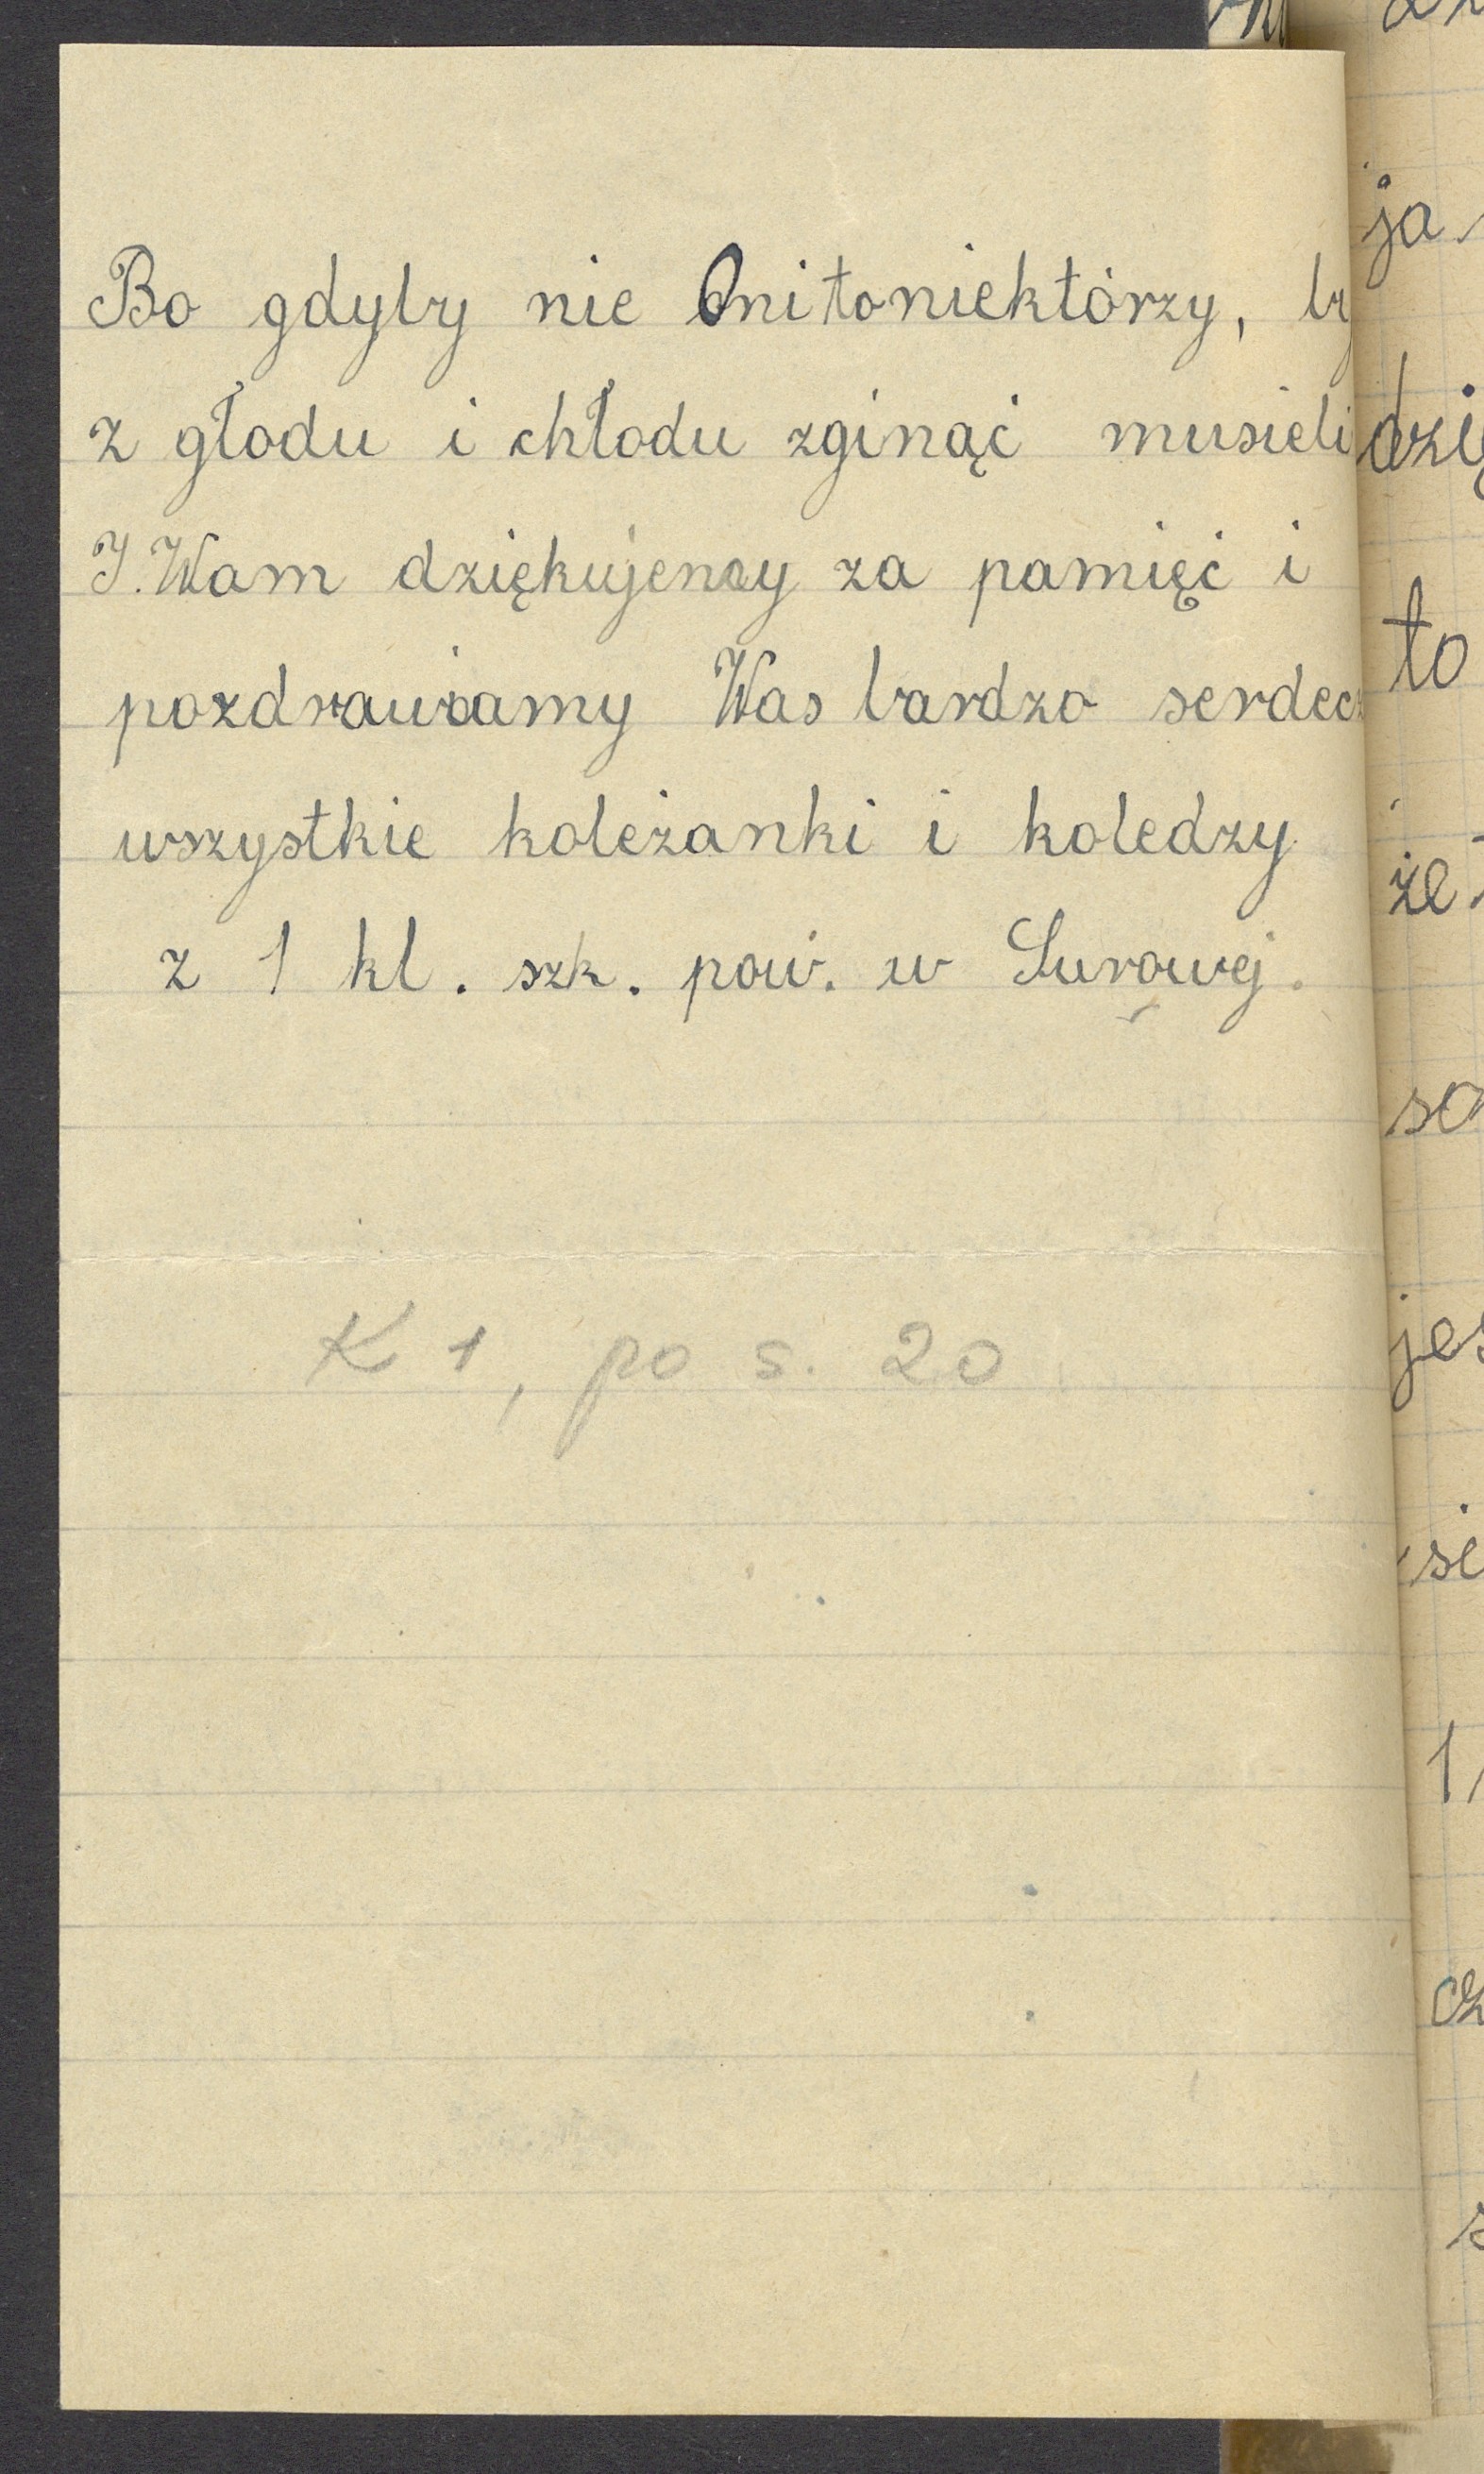 Bo gdyby nie Oni to niektórzy, by
z głodu i chłodu zginąć musieli
I. Wam dziękujemy za pamięć i
pozdrawiamy Was bardzo serdecz
wszystkie koleżanki i koledzy
z 1 kl. szk. pow. w Surowej.
K 1, po s. 20
ja
dzię
to
że
so
jes
sie
1
cz
s